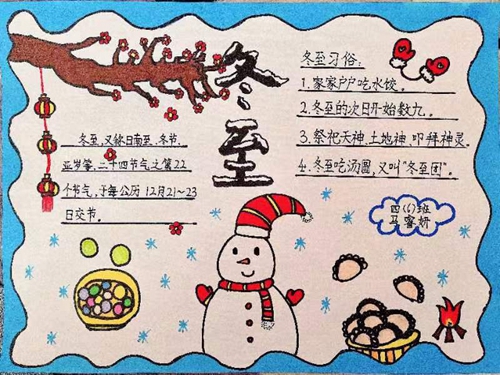 冬至
冬至,又称日南至、冬节、
亚岁等,二十四节气之第22
个节气,于每公历12月21~23
日交节。
冬至习俗:
1.家家户户吃水饺。
2.冬至的次日开始数九。
3.祭祀天神、土地神,叩拜神灵。
4.冬至吃汤圆,又叫“冬至团”。
四(6)班
马睿妍